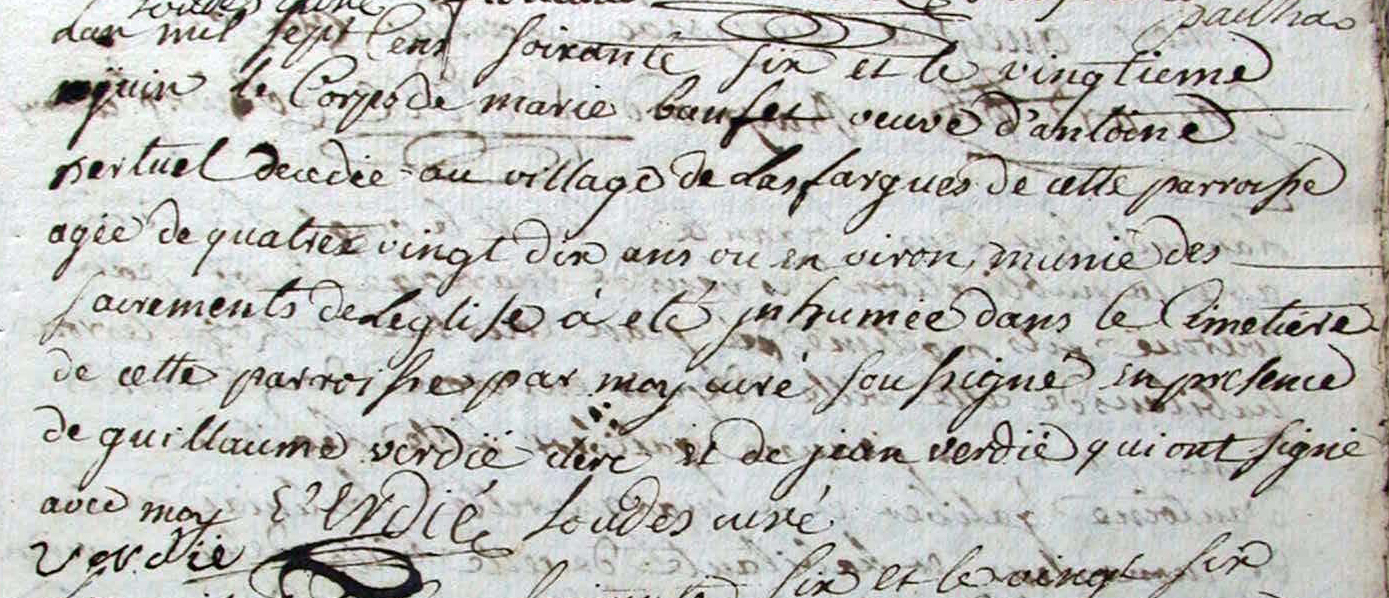 Loudes curé
paulhac
Lan mil sept Cens soixante six et le vingtieme
juin le Corps de marie baufet veuve d'antoine
pertuel decedée au village de Lasfargues de cette parroisse
agée de quatrex vingt dix ans ou en viron, munie des
sacrements de Leglise à eté jnhumée dans le Cimetiere
de cette parroisse par moy curé soussigné en presence
de guillaume verdié clerc et de jean verdié qui ont signé
avec moy Verdié Loudes curé
verdié
six et le vingt six